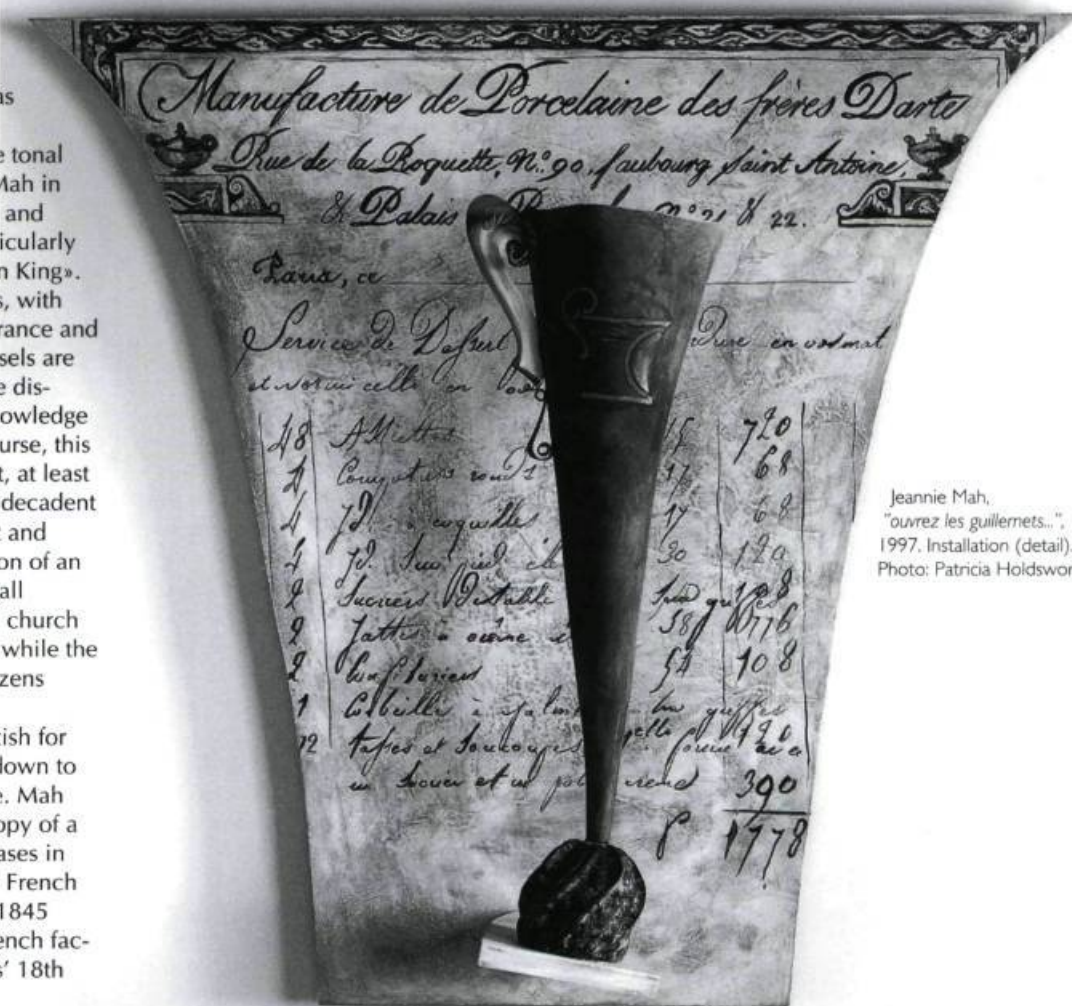 as
e tonal
Mah in
and
icularly
n King».
s, with
rance and
sels are
e dis-
owledge
urse, this
t, at least
decadent
t and
on of an
all
church
while the
zens
ish for
down to
e. Mah
opy of a
ases in
French
1845
ench fac-
s' 18th
Manufacture de Porcelaine des frères Darte
Rue de la Roquette, N.º 90, faubourg Saint Antoine,
& Palais nº 21 & 22.
Paris, ce
Service de Dessert en or mat
et en
48 Assiettes 15 720
4 Compotiers ronds 17 68
4 Jd. à coquilles 17 68
4 Jd. Sur pied 30 120
2 Sucriers De table 108
2 Jattes à crème 58 116
2 Confituriers 54 108
1 Corbeille à
12 tasses et Soucoupes forme avec
un Sucrier et un pot crème 390
1778
Jeannie Mah,
"ouvrez les guillemets...",
1997. Installation (detail).
Photo: Patricia Holdswor